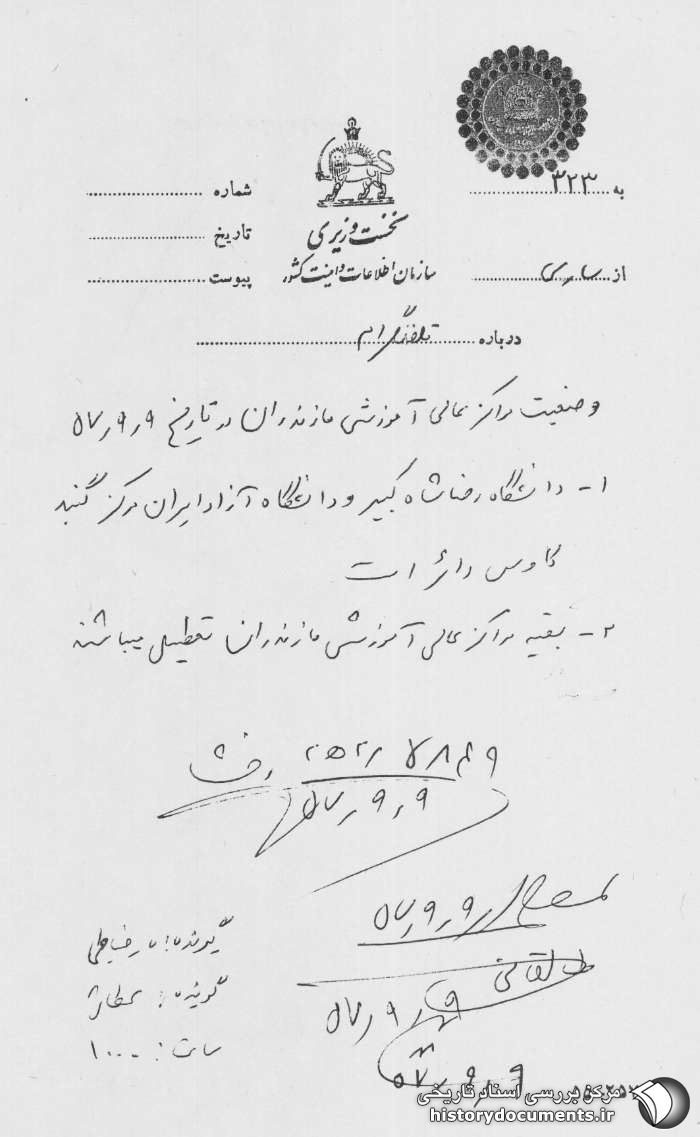 به ۳۲۳
شماره
نخست وزیری
تاریخ
سازمان اطلاعات و امنیت کشور
از ساری
پیوست
درباره تلفنگرام
وضعیت مراکز عالی آموزشی مازندران در تاریخ ۵۷٫۹٫۹
۱- دانشگاه رضاشاه کبیر و دانشگاه آزاد ایران مرکز گنبد
کاوس دائر است
۲- بقیه مراکز عالی آموزشی مازندران تعطیل میباشند
۵۷٫۹٫۹
۵۷٫۹٫۹
گیرنده:
طالقانی
گوینده: عطار
۵۷٫۹٫۹
ساعت: ۱۰۰۰
۵۷٫۹٫۹
مرکز بررسی اسناد تاریخی
historydocuments.ir